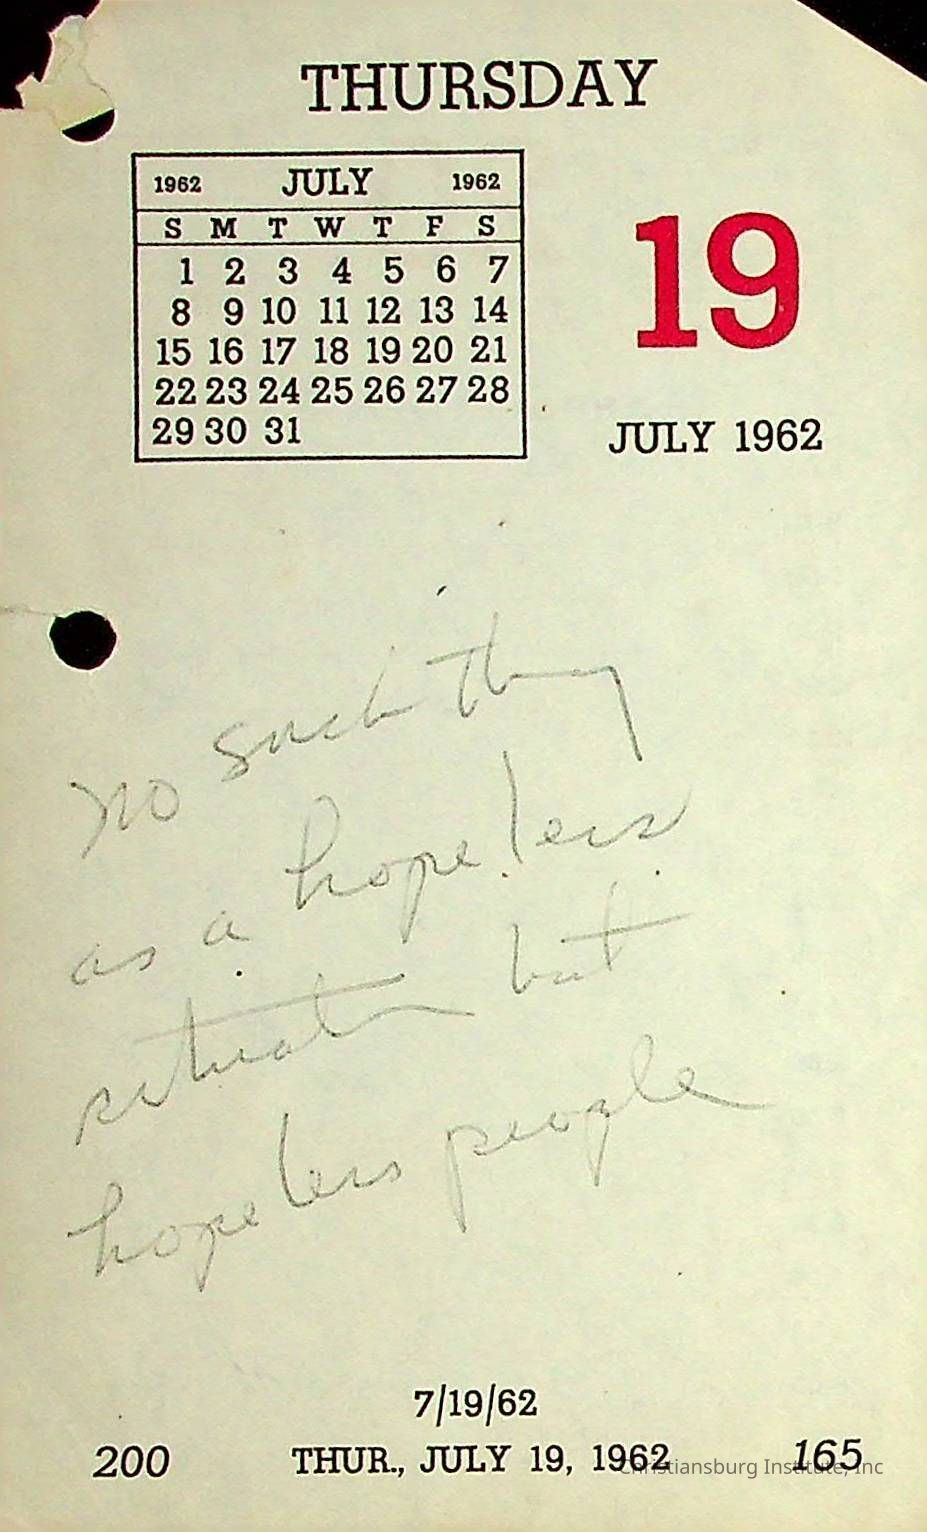 THURSDAY
1962 JULY 1962
S M T W T F S
1 2 3 4 5 6 7
8 9 10 11 12 13 14
15 16 17 18 19 20 21
22 23 24 25 26 27 28
29 30 31
19
JULY 1962
no such thing
as a hopeless
situation but
hopeless people
7/19/62
200 THUR., JULY 19, 1962 165
Christiansburg Institute, Inc